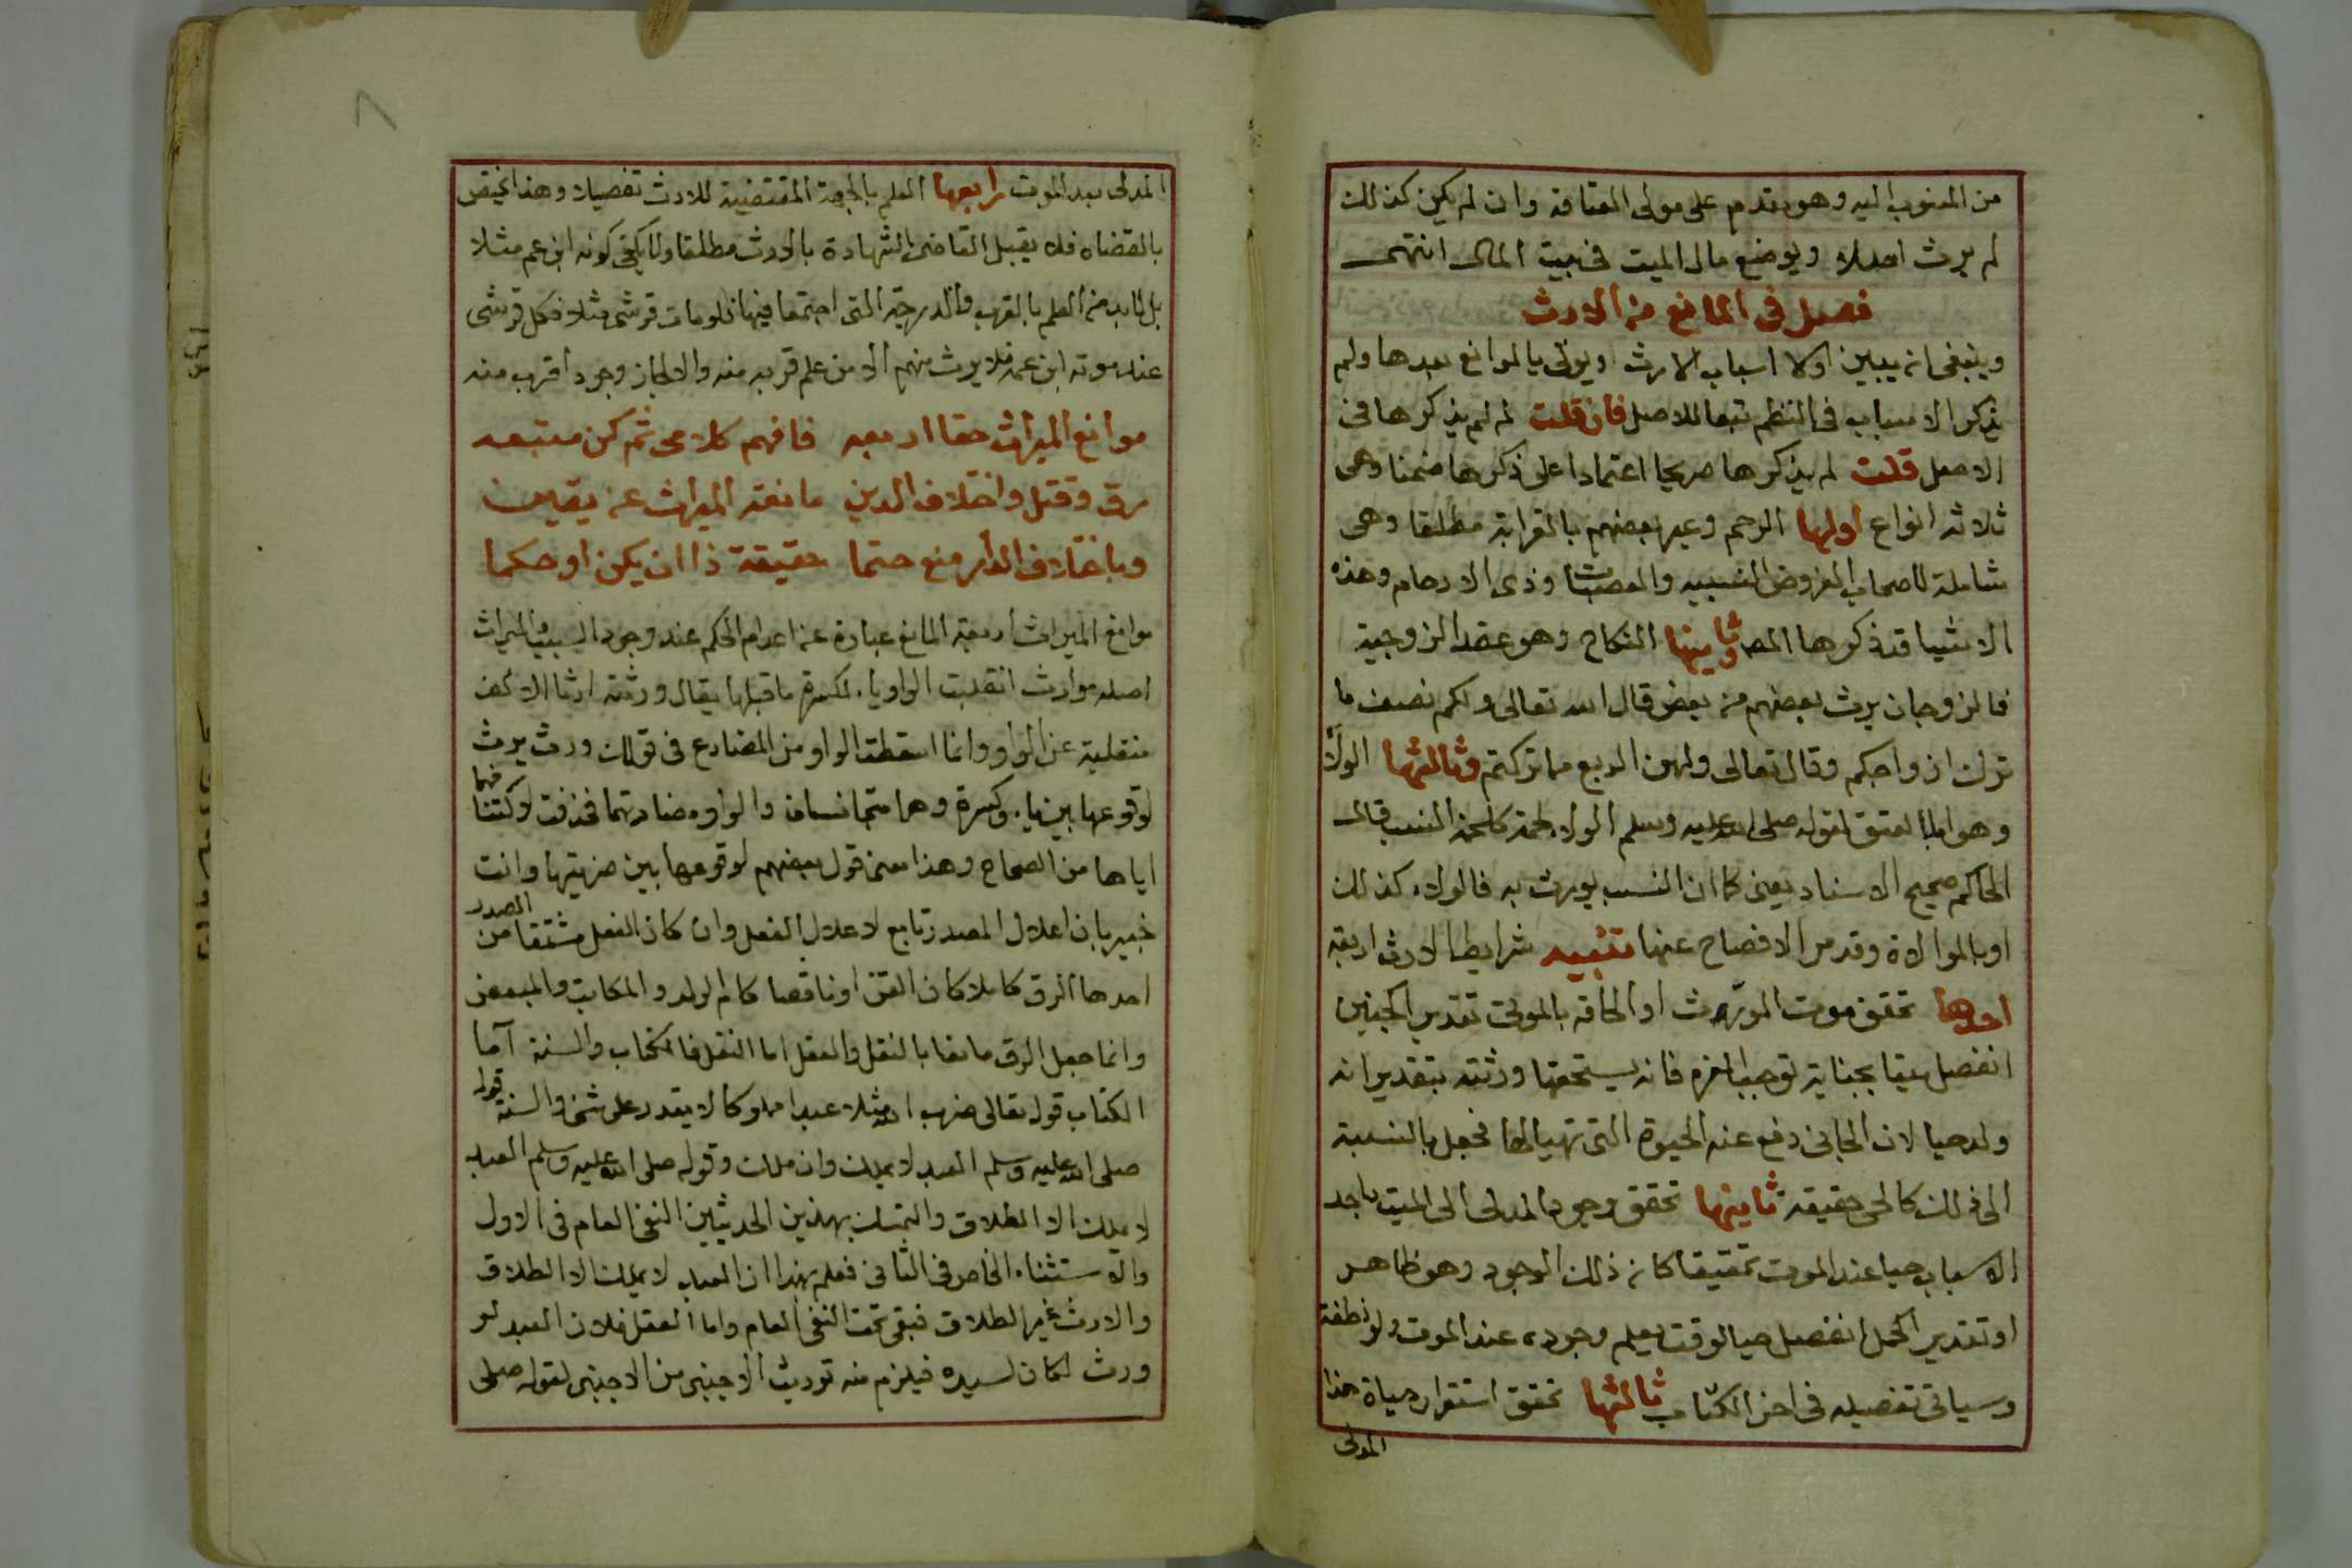 من المنسوب اليه وهو مقدم على مولى العتاقة وان لم يكن كذلك
لم يرث احدا ويوضع مال الميت في بيت المال انتهى
فصل في المانع من الارث
وينبغي ان يبين اولا اسباب الارث ويؤتى بالموانع بعدها ولم
يذكر الاسباب في النظم تبعا للاصل فان قلت لم لم يذكرها في
الاصل قلت لم يذكرها صريحا اعتمادا على ذكرها ضمنا وهي
ثلاثة انواع اولها الرحم وعبر بعضهم بالقرابة مطلقا وهي
شاملة لاصحاب الفروض النسبيه والعصبات وذوى الارحام وهذه
الاشيا قد ذكرها المص وثانيها النكاح وهو عقد الزوجية
فالزوجان يرث بعضهم من بعض قال الله تعالى ولكم نصف ما
ترك ازواجكم وقال تعالى ولهن الربع مما تركتم وثالثها الولاء
وهو اما بالعتق لقوله صلى الله عليه وسلم الولاء لحمة كلحمة النسب قال
الحاكم صحيح الاسناد يعني كما ان النسب يورث به فالولاء كذلك
او بالموالاة وقد مر الافصاح عنها تنبيه شرايط الارث اربعة
احدها تحقق موت المورّث او الحاقه بالموتى تقديرا كجنين
انفصل ميتا بجناية توجب الغرم فانه يستحقها ورثته بتقدير انه
ولد حيا لان الجاني دفع عنه الحيوة التي تهيا لها فجعل بالنسبة
الى ذلك كالحي حقيقة ثانيها تحقق وجود المدلى الى الميت باحد
الاسباب حيا عند الموت تحقيقا كان ذلك الوجود وهو ظاهر
او تقديرا كحمل انفصل حيا لوقت يعلم وجوده عند الموت ولو نطفة
وسياتي تفصيله في اخر الكتاب ثالثها تحقق استقرار حياة هذا
المدلى
المدلى بعد الموت رابعها العلم بالجهة المقتضية للارث تفصيلا وهذا يختص
بالقضاء فلا يقبل القاضى الشهادة بالارث مطلقا ولا يكفي كونه ابن عم مثلا
بل لا بد من العلم بالقرب والدرجة التى اجتمعا فيها فلو مات قرشى مثلا فكل قرشى
عند موته ابن عمه فلا يرث منهم الا من علم قربه منه والا لجاز وجود اقرب منه
موانع الميراث حقا اربعه فافهم كلامى ثم كن متبعه
رق وقتل واختلاف الدين مانعة الميراث عن يقين
وباختلاف الدار منع حتما حقيقة ذا ان يكن او حكما
موانع الميراث اربعة المانع عبارة عن اعدام الحكم عند وجود السبب والميراث
اصله موارث انقلبت الواو ياء لكسرة ما قبلها يقال ورثته ارثا الالف
منقلبة عن الواو وانما اسقطت الواو من المضارع في قولك ورث يرث
لوقوعها بين ياء وكسرة وهما متجانسان والواو مضادتهما فحذفت لاكتنافهما
اياها من الصحاح وهذا معنى قول بعضهم لوقوعها بين ضرتيها وانت
خبير بان اعلال المصدر تابع لاعلال الفعل وان كان الفعل مشتقا من المصدر
احدها الرق كاملا كان كالقن او ناقصا كام الولد والمكاتب والمبعض
وانما جعل الرق مانعا بالنقل والعقل اما النقل فالكتاب والسنة اما
الكتاب قوله تعالى ضرب الله مثلا عبدا مملوكا لا يقدر على شئ والسنة قوله
صلى الله عليه وسلم العبد لا يملك وان ملك وقوله صلى الله عليه وسلم العبد
لا يملك الا الطلاق والتمسك بهذين الحديثين النفي العام في الاول
والاستثناء الخاص في الثاني فعلم بهذا ان العبد لا يملك الا الطلاق
والارث غير الطلاق فبقي تحت النفي العام واما العقل فلان العبد لو
ورث لكان لسيده فيلزم منه توريث الاجنبى من الاجنبى لقوله صلى